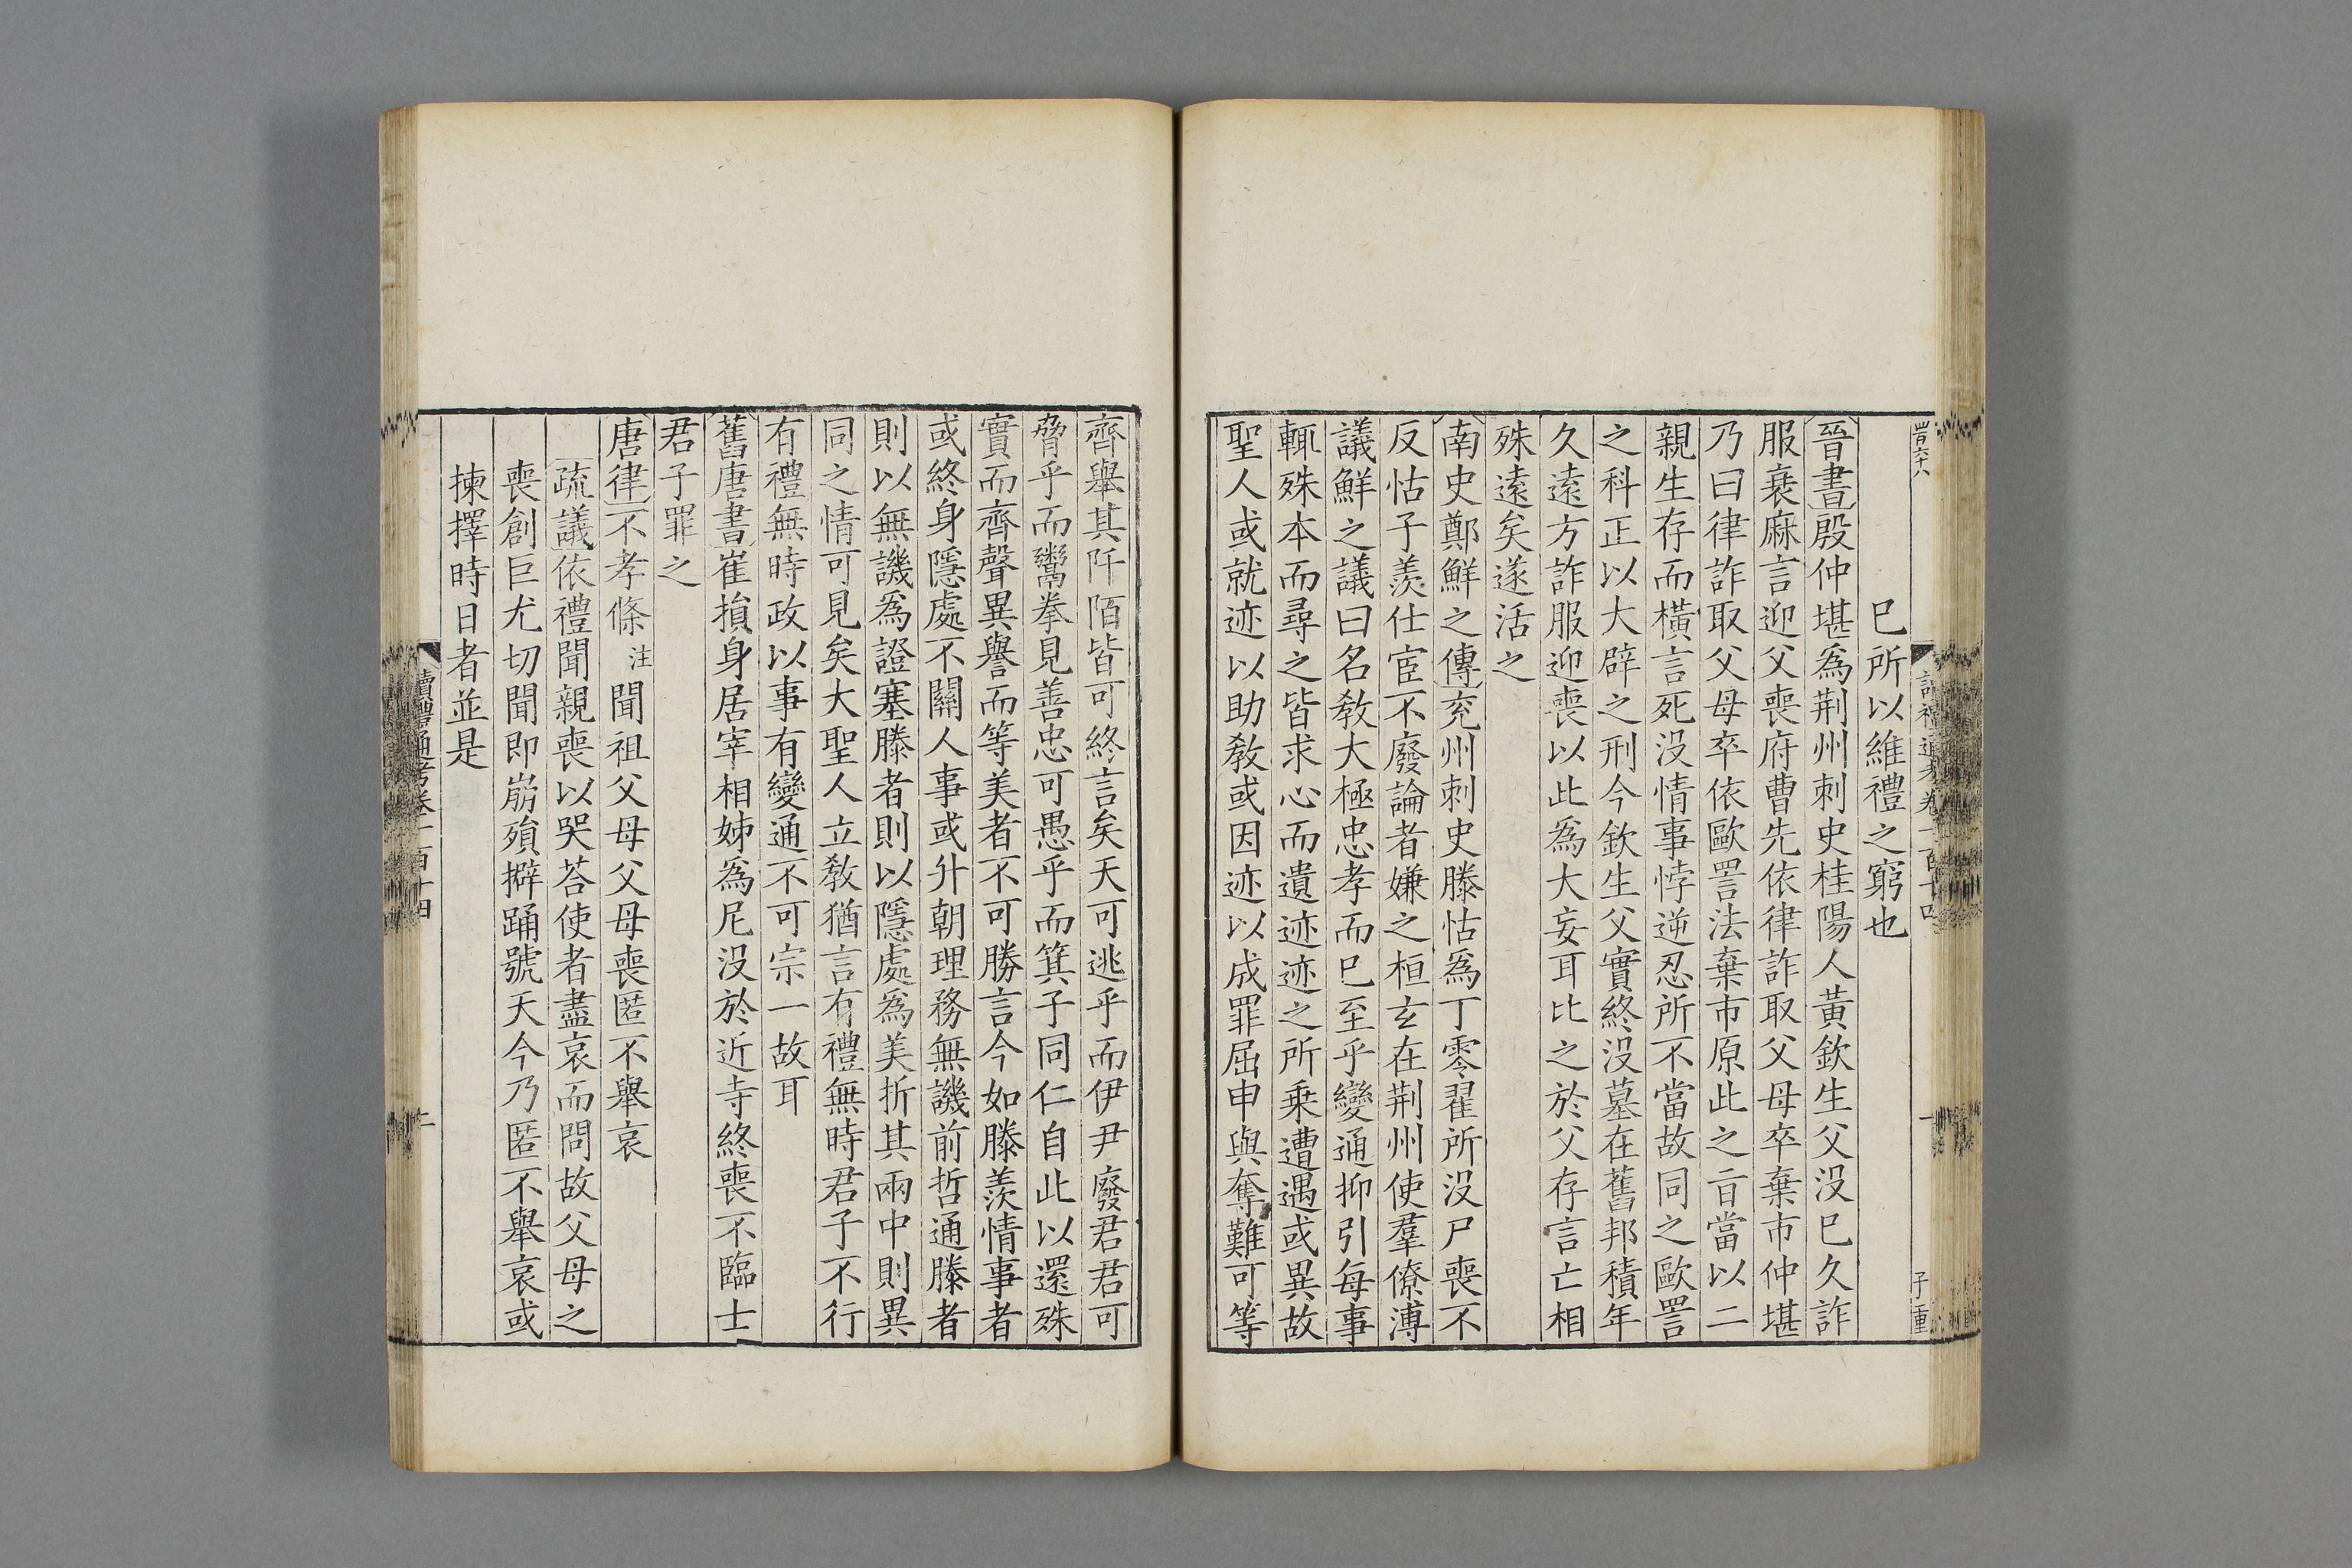 巳所以維禮之窮也
晉書殷仲堪爲荆州刺史桂陽人黃欽生父没巳久詐
服衰麻言迎父喪府曹先依律詐取父母卒棄市仲堪
乃曰律詐取父母卒依歐詈法棄市原此之旨當以二
親生存而橫言死没情事悖逆忍所不當故同之歐詈
之科正以大辟之刑今欽生父實終没墓在舊邦積年
久遠方詐服迎喪以此爲大妄耳比之於父存言亡相
殊遠矣遂活之
南史鄭鮮之傳兖州刺史滕恬爲丁零翟所没尸喪不
反恬子羨仕宦不廢論者嫌之桓玄在荆州使羣僚溥
議鮮之議曰名敎大極忠孝而巳至乎變通抑引每事
輒殊本而尋之皆求心而遺迹迹之所乗遭遇或異故
聖人或就迹以助敎或因迹以成罪屈申與奪難可等
齊舉其阡陌皆可終言矣天可逃乎而伊尹廢君君可
脅乎而鬻拳見善忠可愚乎而箕子同仁自此以還殊
實而齊聲異譽而等美者不可勝言今如滕羨情事者
或終身隱處不關人事或升朝理務無譏前哲通滕者
則以無譏爲證塞滕者則以隱處爲美折其兩中則異
同之情可見矣大聖人立敎猶言有禮無時君子不行
有禮無時政以事有變通不可宗一故耳
舊唐書崔損身居宰相姊爲尼没於近寺終喪不臨士
君子罪之
唐律不孝條注聞祖父母父母喪匿不舉哀
疏議依禮聞親喪以哭荅使者盡哀而問故父母之
喪創巨尤切聞即崩殞擗踊號天今乃匿不舉哀或
揀擇時日者並是
讀禮通考卷一百十四
二